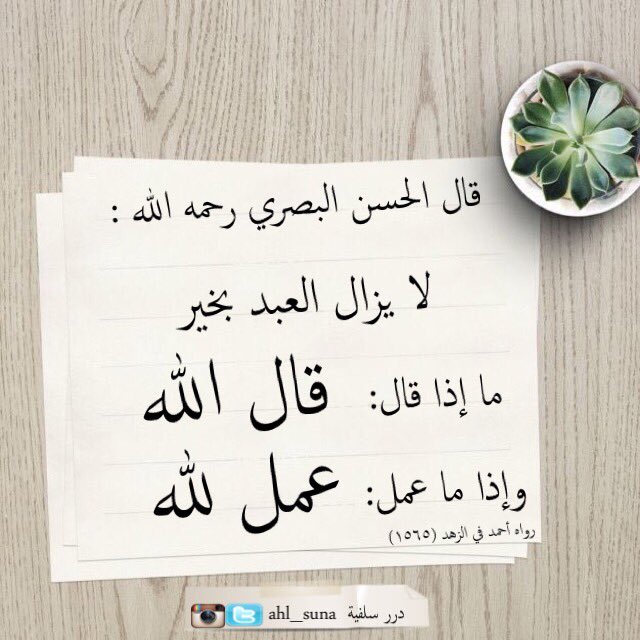 قال الحسن البصري رحمه الله :
لا يزال العبد بخير
ما إذا قال: قال الله
وإذا ما عمل: عمل لله
رواه أحمد في الزهد (١٥٦٥)
درر سلفية ahl_suna